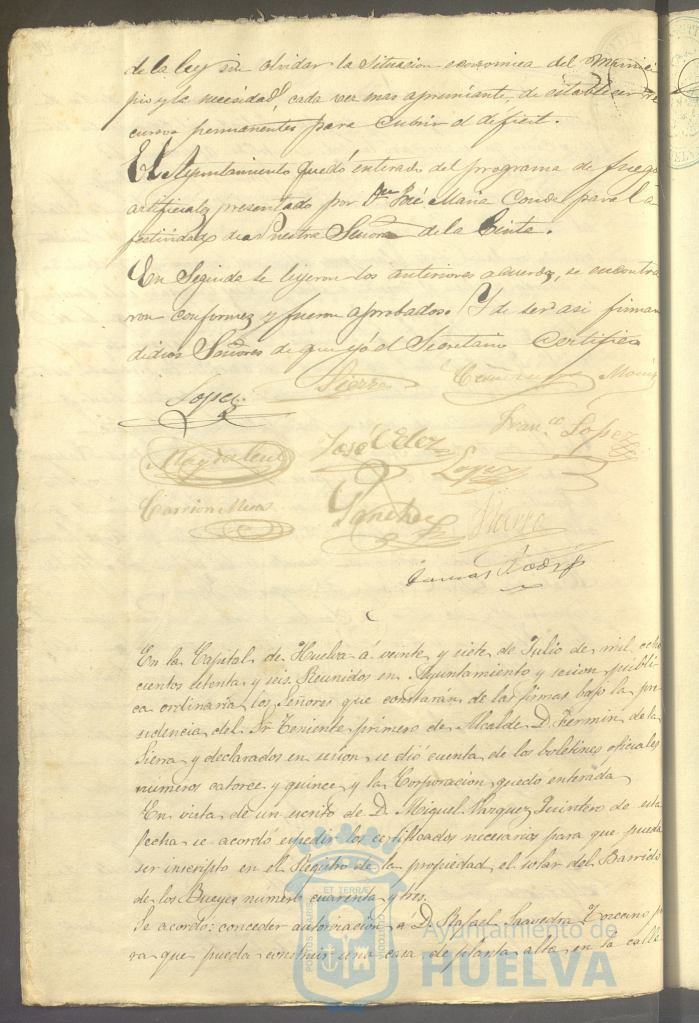 de la ley sin olvidar la situacion economica del Munici
pio y la necesidad, cada vez mas apremiante, de establecer re
cursos permanentes para cubrir el deficit.
El Ayuntamiento quedó enterado del programa de fuegos
artificiales presentado por Don José Maria Conde para la
festividad de Nuestra Señora de la Cinta.
En Seguida se leyeron los anteriores acuerdos, se encontra
ron conformes y fueron aprobados. Y de ser asi firman
dichos Señores de que yó el Secretario Certifico
Lopez Sierra
Magdalena José Velez Lopez Franco Lopez
Carrion Mena Sanchez Sierra
En la Capital de Huelva á veinte y siete de Julio de mil ocho
cientos setenta y seis. Reunidos en Ayuntamiento y sesion públi
ca ordinaria los Señores que constarán de las firmas bajo la pre
sidencia del Sr Teniente primero de Alcalde D. Fermin de la
Sierra y declarados en sesion, se dió cuenta de los boletines oficiales
numeros catorce y quince y la Corporacion quedo enterada
En vista de un escrito de D. Miguel Vazquez Quintero de esta
fecha se acordó expedir los certificados necesarios para que pueda
ser inscripto en el Registro de la propiedad, el solar del Barrido
de los Bueyes numero cuarenta y tres.
Se acordo: conceder autorizacion á D. Rafael Saavedra Toscano pa
ra que pueda construir una casa de planta alta en la calle
PORTUS MARIS ET TERRÆ CUSTODIA
Ayuntamiento de
HUELVA